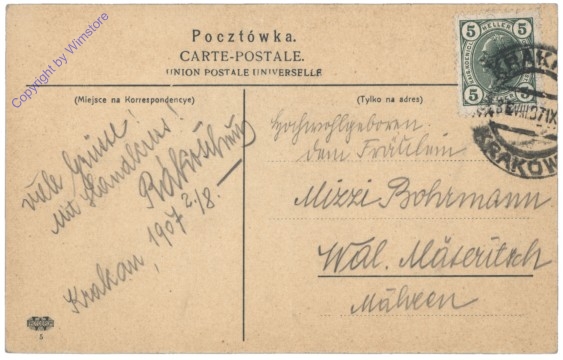 Copyright by Wimstore
Pocztówka.
CARTE-POSTALE.
UNION POSTALE UNIVERSELLE
(Miejsce na Korrespondencye)
(Tylko na adres)
5 HELLER 5
5 5
KRAKÓW
KRAKÓW
Viele Grüsse!
Mit Handkuss!
Krakau, 1907 2./8.
Hochwohlgeboren
dem Fräulein
Mizzi Bohrmann
Wal. Mäseritsch
Mähren
5